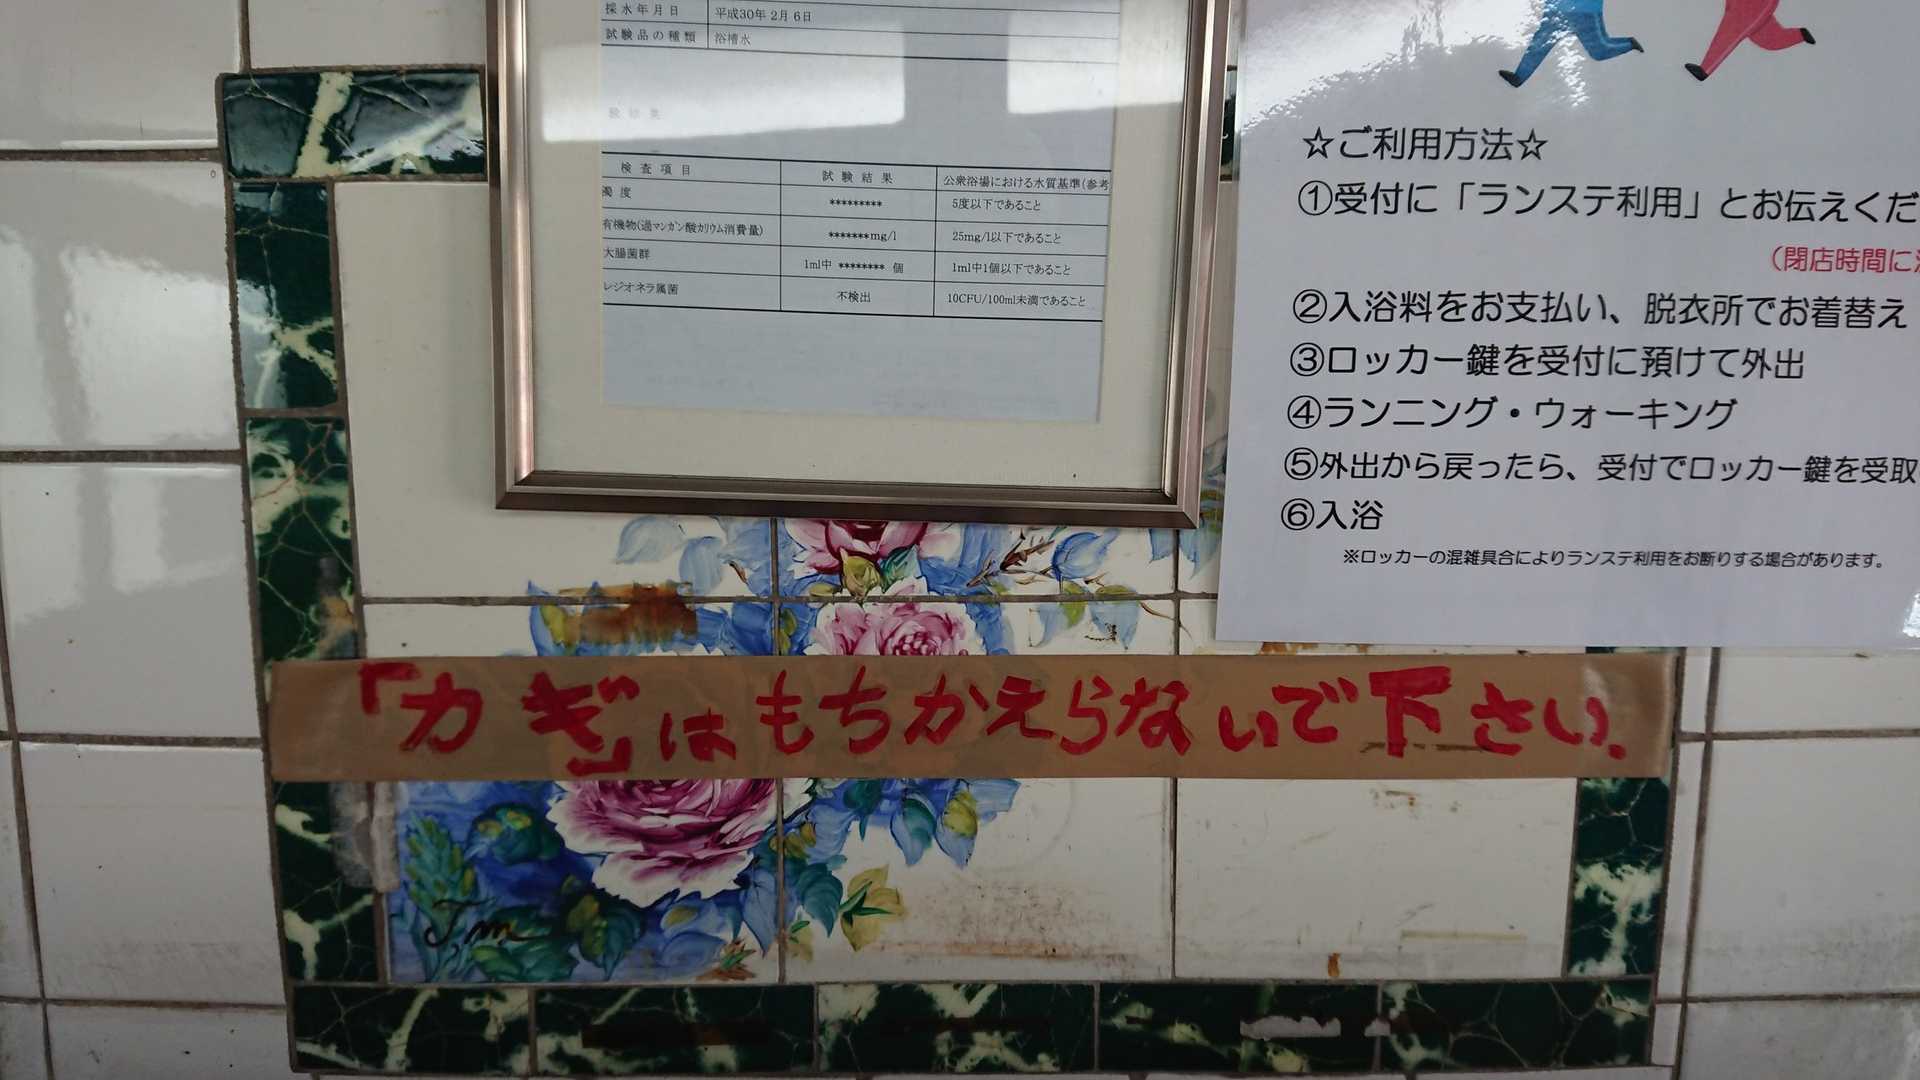 採水年月日 平成30年 2月 6日
試験品の種類 浴槽水
験結果
検査項目 試験結果 公衆浴場における水質基準(参考
濁度 ********* 5度以下であること
有機物(過マンガン酸カリウム消費量) *******mg/l 25mg/l以下であること
大腸菌群 1ml中 ******** 個 1ml中1個以下であること
レジオネラ属菌 不検出 10CFU/100ml未満であること
☆ご利用方法☆
①受付に「ランステ利用」とお伝えくだ
(閉店時間に
②入浴料をお支払い、脱衣所でお着替え
③ロッカー鍵を受付に預けて外出
④ランニング・ウォーキング
⑤外出から戻ったら、受付でロッカー鍵を受取
⑥入浴
※ロッカーの混雑具合によりランステ利用をお断りする場合があります。
「カギ」はもちかえらないで下さい.
J,m